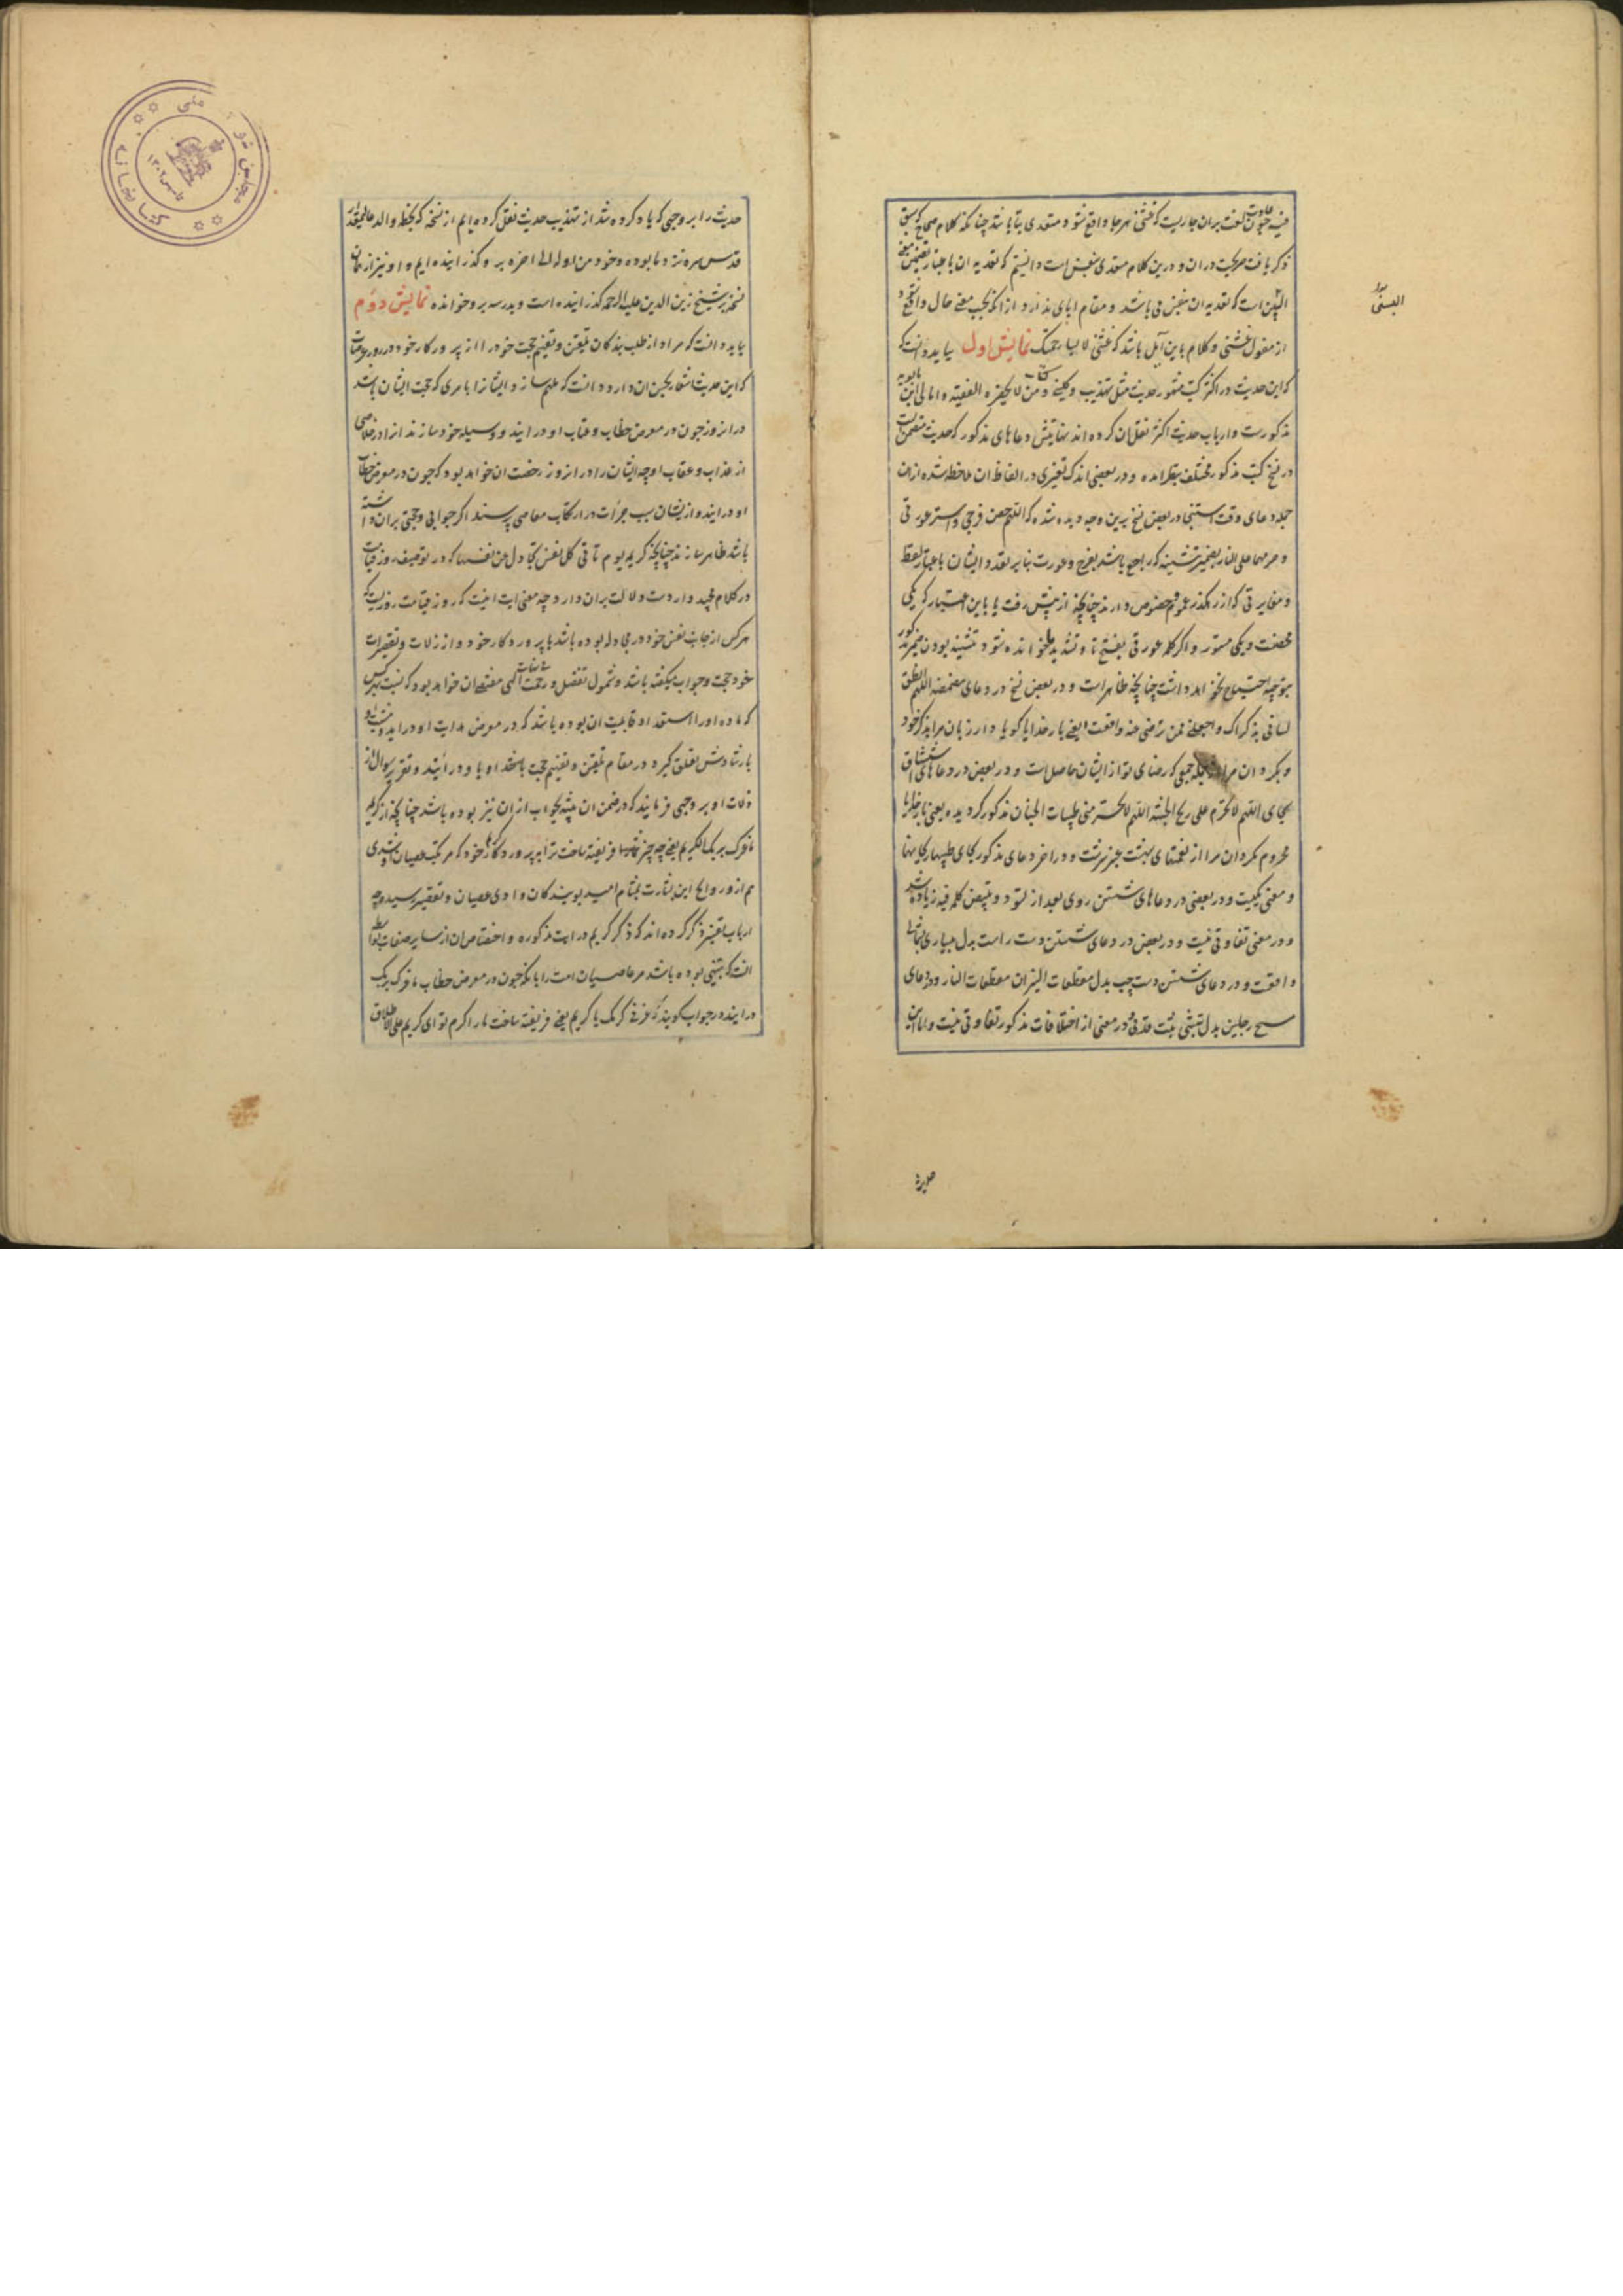 فیه چون عادت لغت بران جاریست که غشی هرجا واقع شود متعدی بتا باشد چنانکه کلام صحاح که سبق
ذکر یافت صریحست دران و درین کلام متعدی بنفس است دانستیم که تعدیه ان باعتبار تضمین معنی
است که تعدیه ان بنفس می باشد و مقام ابای ندارد و از آنکه بحسب معنی حال واقع شود
از مفعول غشنی و کلام باین آیل باشد که غشنی لابسا رحمتک نمایش اول بباید دانست که
که این حدیث در اکثر کتب مشهور حدیث مثل تهذیب و کلینی و کتاب من لا یحضره الفقیه و امالی ابن بابویه
مذکورست و ارباب حدیث اکثر نقل ان کرده اند نهایتش دعاهای مذکور که حدیث متضمن است
در نسخ کتب مذکور مختلف بنظر امده و در بعضی اندک تغییری در الفاظ ان ملاحظه شده ازان
جمله دعای وقت استنجا در بعض نسخ برین وجه دیده شده که اللهم حصن فرجی و استر عورتی
و حرمهما علی النار بضمیر تثنیه که راجع باشد بفرج و عورت بنابر تعدد ایشان باعتبار لفظ
و مغایرتی که از رهگذر عموم و خصوص دارند چنانچه از پیش رفت یا باین اعتبار که یکی
محصنت و یکی مستور و اگر کلمه عورتی بفتح تا و تشدید یا خوانده شود تثنیه بودن ضمیر مذکور
بتوجیه احتیاج نخواهد داشت چنانچه ظاهر است و در بعض نسخ در دعای مضمضه اللهم انطق
لسانی بذکرک و اجعلنی ممن ترضی عنه واقعست یعنی بار خدایا گویا دار زبان مرا بذکر خود
و بگردان مرا از جمله جمعی که رضای تو از ایشان حاصل است و در بعض در دعای استنشاق
بجای اللهم لا تحرم علی ریح الجنة اللهم لا تحرمنی طیبات الجنان مذکور گردیده یعنی بار خدایا
محروم مگردان مرا از نعمتهای بهشت عنبر سرشت و در اخر دعای مذکور بجای طیبها ریحانها
و معنی یکیست و در بعضی در دعاهای شستن روی بعد از تسود و تبیض کلمه فیه زیاده شد
و در معنی تفاوتی نیست و در بعض در دعای شستن دست راست بدل بیساری بشمالی
واقعست و در دعای شستن دست چپ بدل مقطعات النیران مقطعات النار و در دعای
مسح رجلین بدل ثبتنی ثبت قدمی و در معنی از اختلافات مذکور تفاوتی نیست و ما این
صورة
حدیث را بر وجهی که یاد کرده شد از تهذیب حدیث نقل کرده ایم از نسخه که بخط والد عالیمقدار
قدس سره نزد ما بوده و خود من اوله الی اخره برو گذرانیده ایم و او نیز از همان
نسخه بر شیخ زین الدین علیه الرحمه گذرانیده است و بدرسه برو خوانده نمایش دوم
بباید دانست که مراد از طلب بندگان تلقین و تفهیم حجت خود را از پروردگار خود در روز عرصات
که این حدیث اشعار بحسن ان دارد و انست که ملهم سازد ایشانرا بامری که حجت ایشان باشد
در ان روز چون در معرض خطاب و عتاب او درایند و وسیله خود سازند انرا در خلاصی
از عذاب و عقاب او چه ایشان را در ان روز رخصت ان خواهد بود که چون در معرض خطاب
او درایند و از ایشان سبب جرات در ارتکاب معاصی پرسند اگر جوابی و حجتی بران داشته
باشند ظاهر سازند چنانچه کریمه یوم تاتی کل نفس تجادل عن نفسها که در توصیف روز قیامت
در کلام مجید واردست دلالت بران دارد چه معنی ایت اینست که روز قیامت روزیست که
هرکس از جانب نفس خود در مجادله بوده باشد با پروردگار خود و از زلات و تقصیرات
خود حجت و جواب میگفته باشد و شمول تفضل و رحمت بی نهایت الهی مقتضی ان خواهد بود که نسبت بهرکس
که ماده او را استعداد و قابلیت ان بوده باشد که در معرض هدایت او دراید
بارشادش تعلق گیرد در مقام تلقین و تفهیم حجت باستحقاد او با او درایند و تقریر سوال از
زلات او بر وجهی فرمایند که در ضمن ان تنبیه بجواب ازان نیز بوده باشد چنانچه از کریمه
ما غرک بربک الکریم یعنی چه چیز فریفته ساخت ترا به پروردگار خود که مرتکب عصیان او شدی
هم از ورود این بشارت بمشام امید بویندگان وادی عصیان و تقصیر رسیده چه
ارباب تفسیر ذکر کرده اند که ذکر کریم در ایت مذکوره و اختصاص ان از سایر صفات بواسطه
انست که تنبیهی بوده باشد مر عاصیان امت را با نکه چون در معرض خطاب ما غرک بربک
درایند در جواب گویند که غرنی کرمک یا کریم یعنی فریفته ساخت مارا کرم تو ای کریم علی الاطلاق